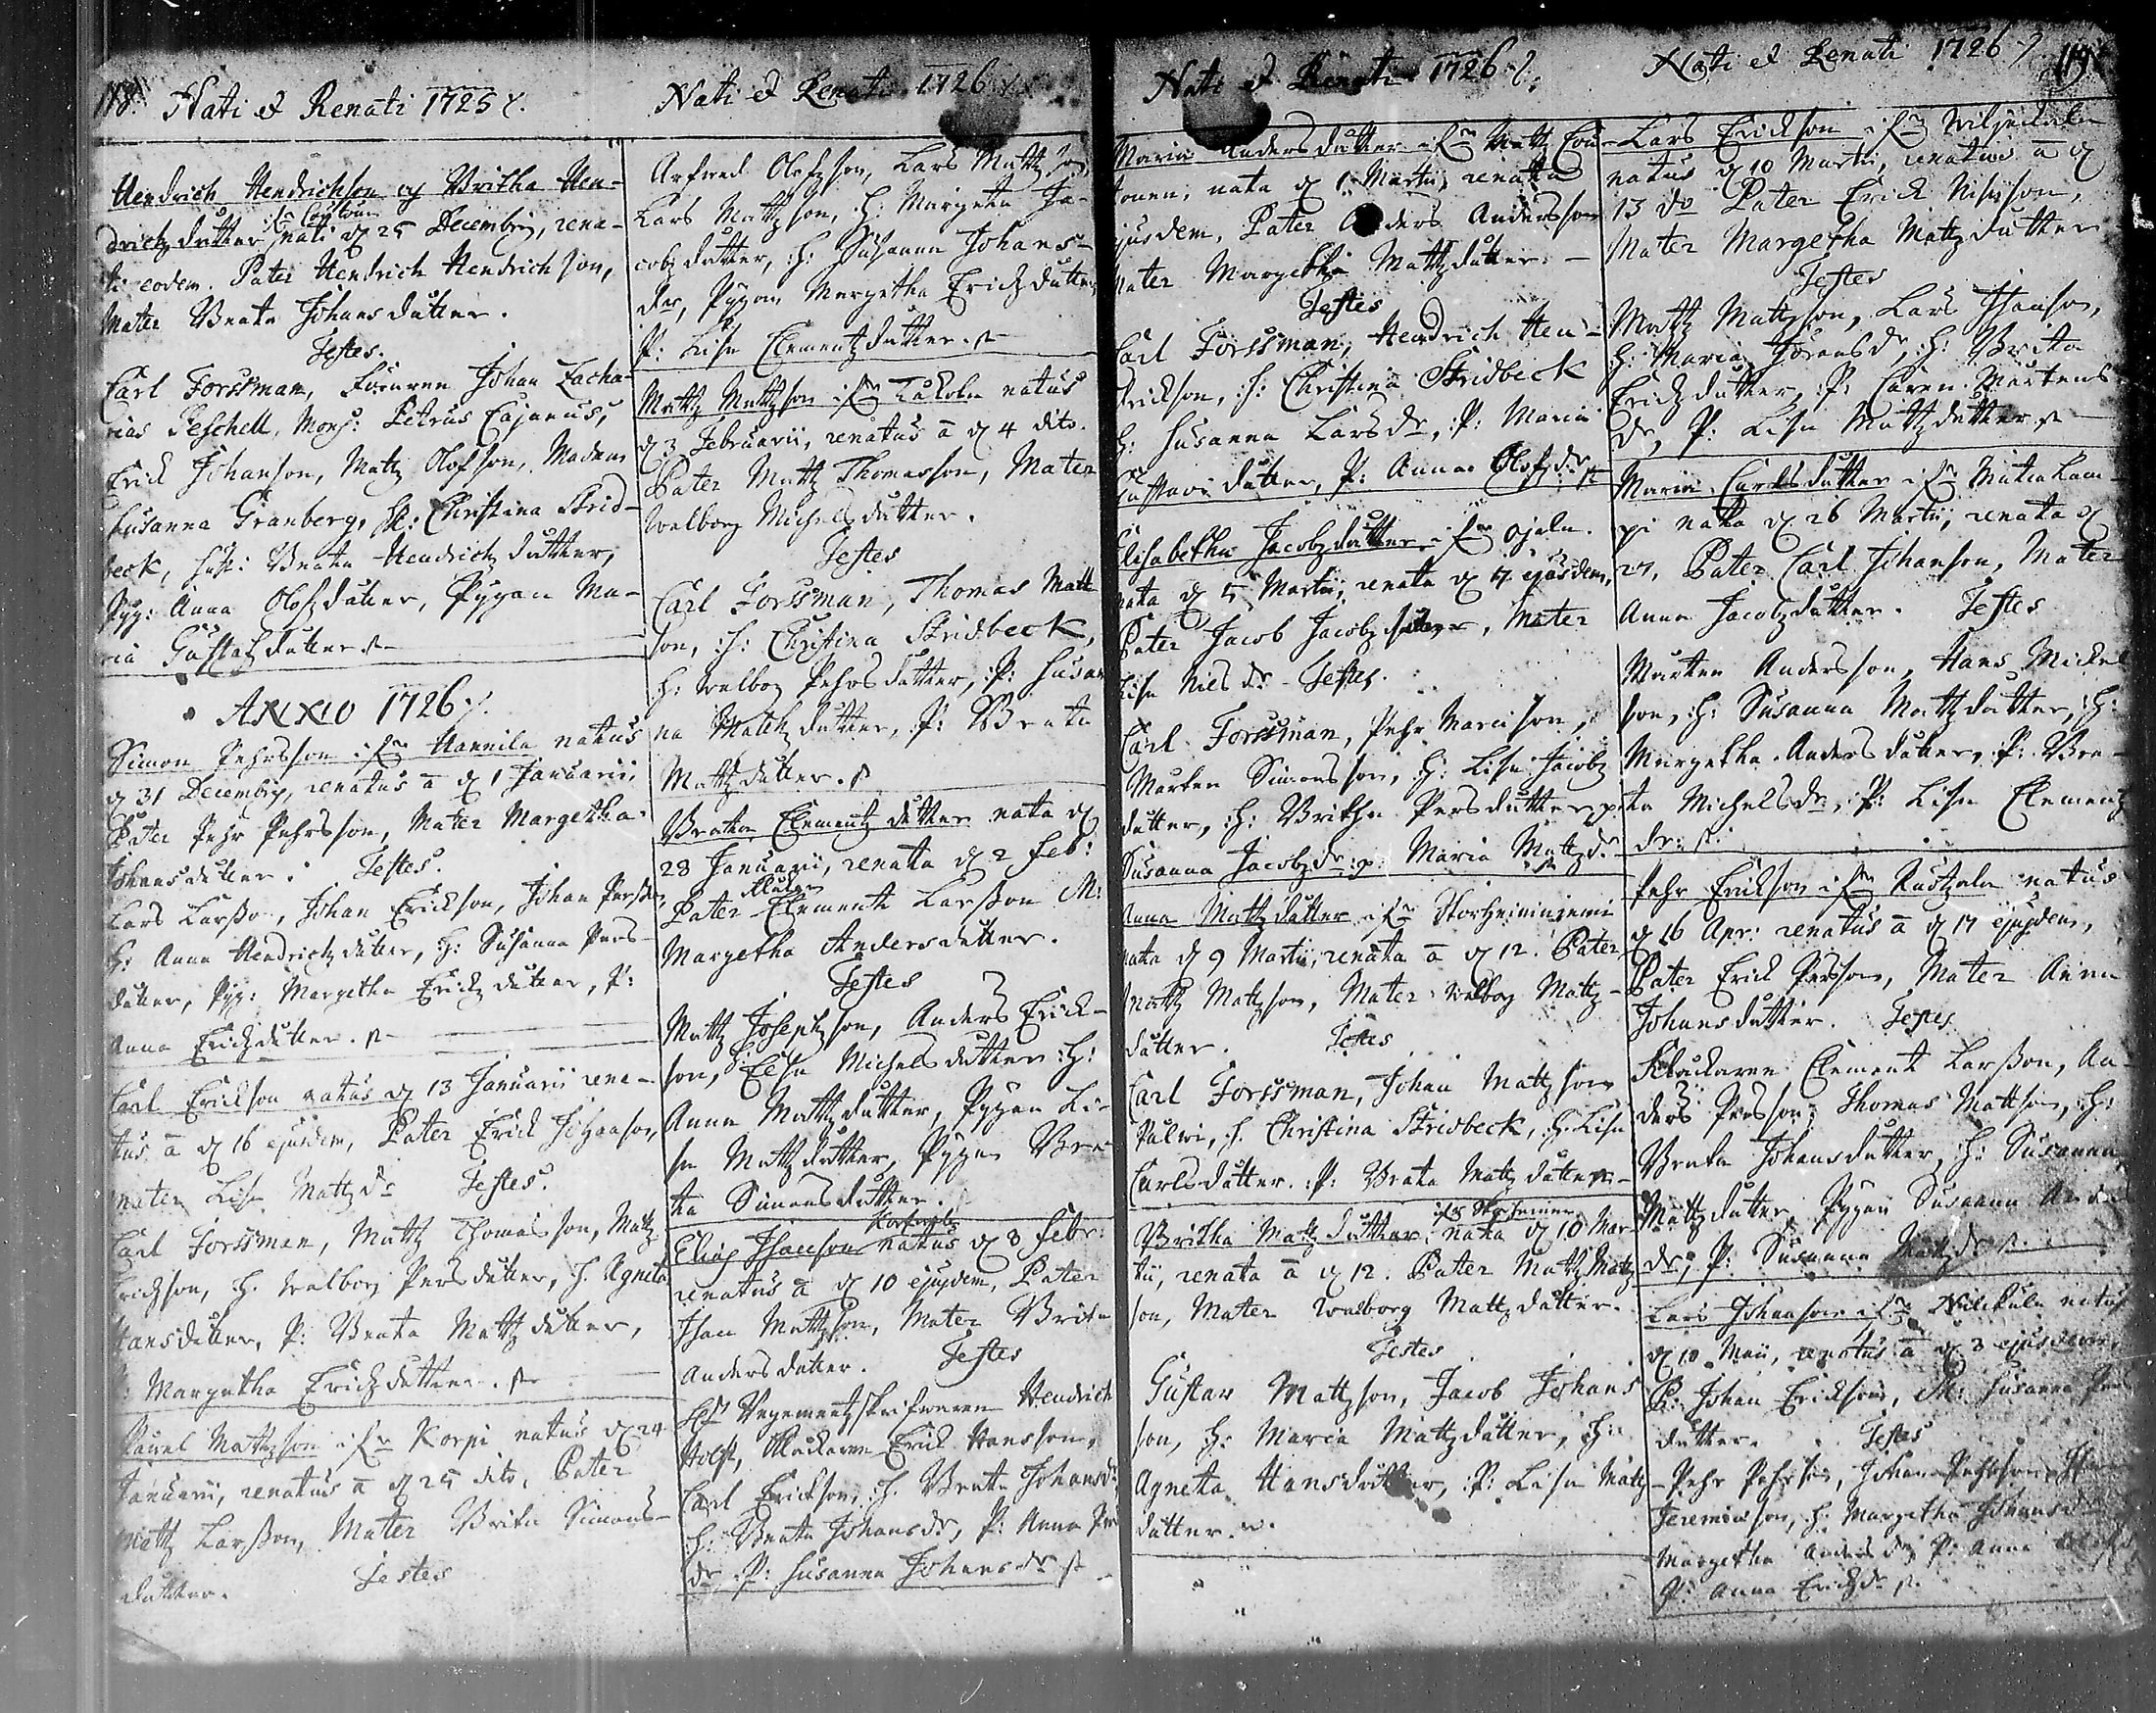 118. Nati et Renati 1725
Hendrich Hendrichson og Britha Hen-
drichz dutter nati d 25 Decembris, rena-
ti eodem. Pater Hendrich Hendrichson,
Mater Beata Johansdutter.
Testes.
Carl Forssman, Johan Zacha-
rias Peschell, Mons: Petrus Cajanus,
Erick Johanson, Mattz Olofson, Madam
Susanna Granberg, Christina Strid-
beck, Beata Hendrichz dutter,
Pyg: Anna Olofzdutter, Pygan Ma-
ria Gustafzdutter
ANNO 1726
Simon Pehrsson i fr Hannila natus
d 31 Decembris, renatus a d 1 Januarii
Pater Pehr Pehrsson, Mater Margetha
Johansdutter. Testes.
Lars Larsson, Johan Erickson, Johan
H: Anna Hendrichzdutter, H: Susanna Pers-
dutter, Pyg: Margetha Erickzdutter, P:
Anna Erickzdutter.
Carl Erickson natus d 13 Januarii rena-
tus a d 16 ejusdem, Pater Erick Johanson,
Mater Lisa Mattzdr Testes.
Carl Forssman, Mattz Thomasson, Mattz
Erickson, H. Walborg Persdutter, H. Agneta
Hansdutter, P: Beata Mattzdutter,
P: Margetha Erickzdutter.
Pavel Mattzson i fr Korpi natus d 24
Januarii, renatus a d 25 dito, Pater
Mattz Larsson, Mater Brita Simons-
dutter. Testes
Nati et Renati 1726
Olofzson, Lars Mattzson
Lars Mattzson, H: Margeta Ja-
cobzdutter, H: Susanna Johans-
dr, Pygan Margetha Erickzdutter
P: Lisa Clementzdutter.
Mattz Mattzson i fr natus
d 3 Februarii, renatus a d 4 dito.
Pater Mattz Thomasson, Mater
Walborg Michelsdutter.
Testes
Carl Forssman, Thomas Matt
son, H: Christina Stridbeck,
H: Walborg Pehrsdutter, P: Susan
na Mattzdutter, P: Beata
Mattzdutter.
Beata Clementzdutter nata d
28 Januarii, renata d 2 Feb:
Pater Clementh Larsson M:
Margetha Andersdutter.
Testes
Mattz Josephzson, Anders Erick-
son, Lisa Michelsdutter H:
Anna Mattzdutter, Pygan Li-
sa Mattzdutter, Pygan Bea
ta Simonsdutter.
Elias Isacson natus d 8 Febr:
renatus a d 10 ejusdem, Pater
Isac Mattzson, Mater Brita
Andersdutter. Testes
Hendrich
Holst, Klockaren Erick Hansson,
Carl Erickson, H. Beata Johansdr
H: Beata Johansdr, P: Anna
dr P: Susanna Johansdr
Nati et Renati 1726
Maria Andersdutter i fr Mattz
nata d 1 Martii renata
ejusdem, Pater Anders Andersson
Mater Margetha Mattzdutter.
Testes
Carl Forssman, Hendrich Hen-
drickson, H: Christina Stridbeck
H: Susanna Larsdr, P: Maria
Gustavi dutter, P: Anna Olofzdr
Elisabetha Jacobzdutter i fr Ojala
nata d 5 Martii, renata d 17 ejusdem,
Pater Jacob Jacobz, Mater
Lisa Nilsdr Testes
Carl Forssman, Pehr Marcuson,
Marten Simonsson, H: Lisa Jacobz
dutter, H: Britha Persdutter p:
Susanna Jacobzdr p: Maria Mattzdr
Anna Mattzdutter i fr Storheininiemi
nata d 9 Martii, renata a d 12. Pater
Mattz Mattzson, Mater Walborg Mattz-
dutter. Testes
Carl Forssman, Johan Mattzson
H. Christina Stridbeck, H. Lisa
Carlsdutter. P: Beata Mattzdutter
Britha Mattzdutter nata d 10 Mar-
tii, renata a d 12. Pater Mattz Mattz
son, Mater Walborg Mattzdutter.
Testes
Gustav Mattzson, Jacob Johans
son, H: Maria Mattzdutter, H:
Agneta Hansdutter, P: Lisa Mattz
dutter.
Nati et Renati 1726 119
Lars Erickson i fr
natus d 10 Martii, renatus a d
13 do Pater Erick Nilsson,
Mater Margetha Mattzdutter
Testes
Mattz Mattzson, Lars Isacson,
H: Maria Joransdr, H: Brita
Erickzdutter, P: Caren Martens
dr, P: Lisa Mattzdutter
Maria Carlsdutter i fr
nata d 26 Martii, renata d
27, Pater Carl Johanson, Mater
Anna Jacobzdutter. Testes
Marten Andersson, Hans Mickel
son, H: Susanna Mattzdutter, H:
Margetha Andersdutter, P: Bea-
ta Michelsdr, P: Lisa Clementz
dr:
Pehr Erickson i fr natus
d 16 Apr: renatus a d 17 ejusdem,
Pater Erick Persson, Mater Anna
Johansdutter. Testes
Klockaren Clement Larsson, An-
ders Persson, Thomas Mattson, H:
Beata Johansdutter, H: Susanna
Mattzdutter, Pygan Susanna
dr, P: Susanna Mattzdr
Lars Johanson i fr natus
d 10 Maii, renatus a d 3 ejusdem,
P: Johan Erickson, M: Susanna
dutter. Testes
Pehr Pehrson, Johan Pehrson,
Jeremiason, H: Margetha Johansdr
Margetha Andersdr P: Anna
P: Anna Erickzdr